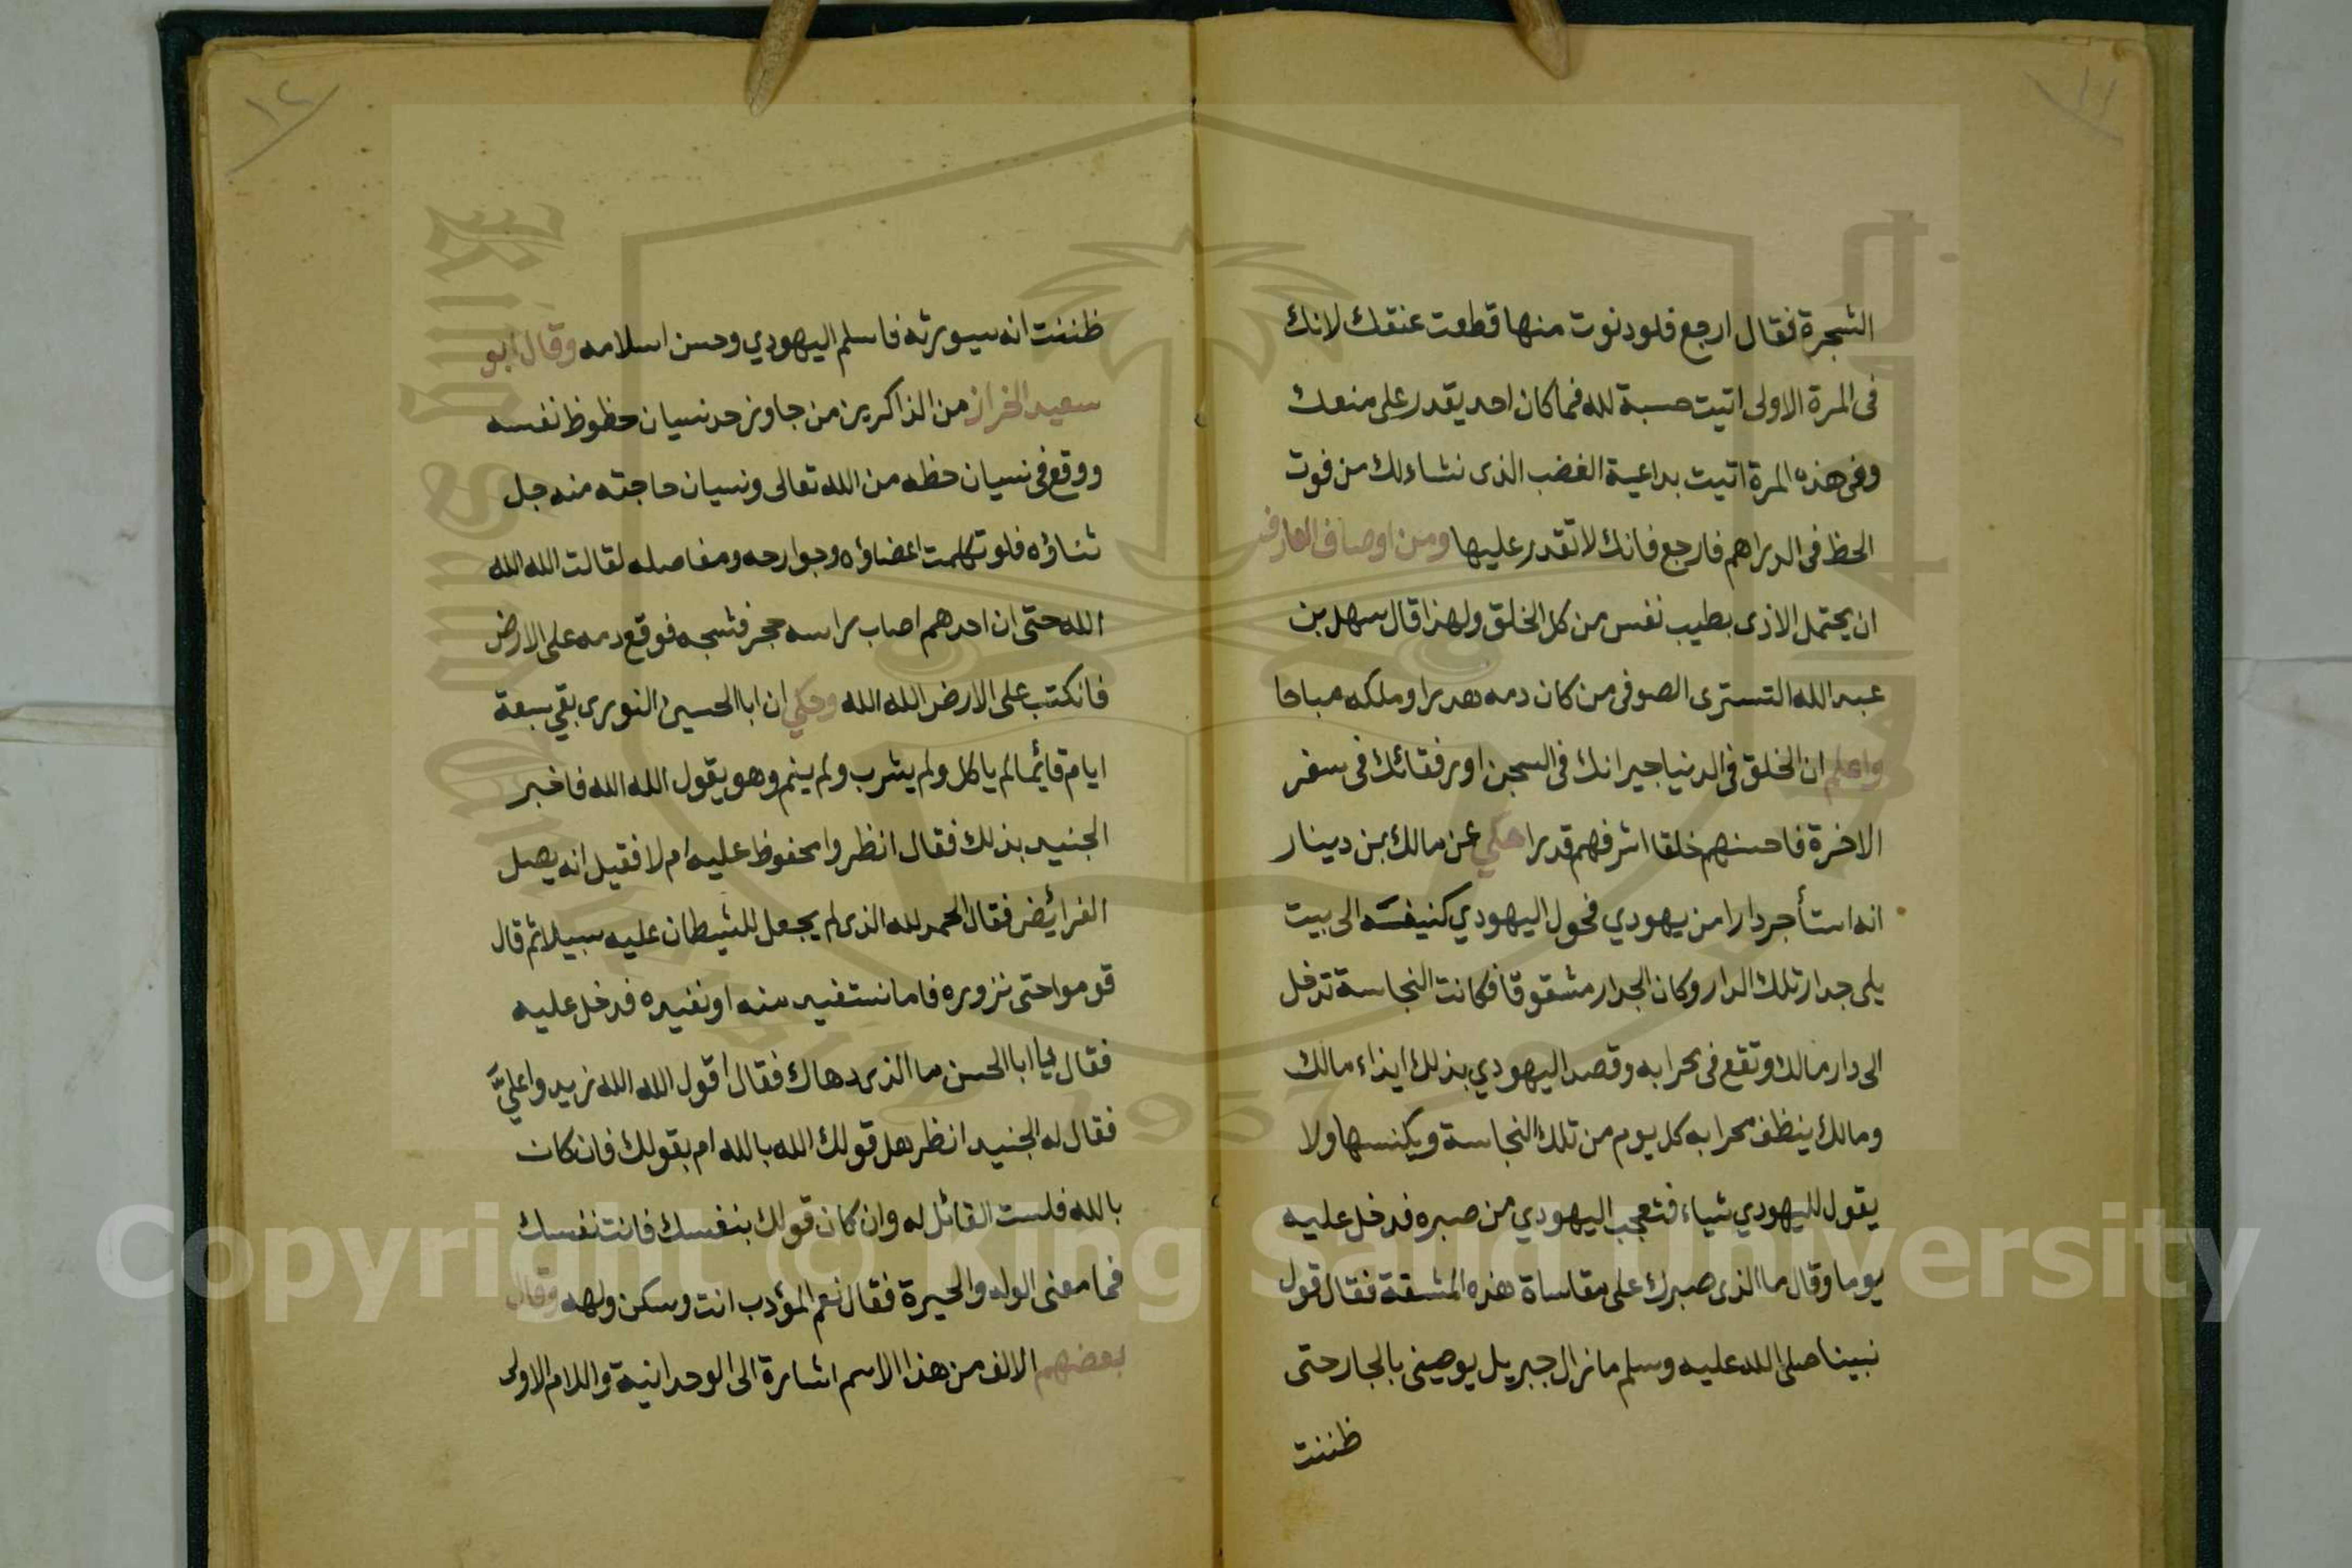 ١١
الشجرة فقال ارجع فلو دنوت منها قطعت عنقك لانك
فى المرة الاولى اتيت حسبة لله فما كان احد يقدر على منعك
وفى هذه المرة اتيت بداعية الغضب الذى نشاء لك من فوت
الحظ فى الدراهم فارجع فانك لا تقدر عليها ومن اوصاف العارف
ان يحتمل الاذى بطيب نفس من كل الخلق ولهذا قال سهل بن
عبد الله التسترى الصوفى من كان دمه هدرا وملكه مباحا
واعلم ان الخلق فى الدنيا جيرانك فى السجن او رفقائك فى سفر
الاخرة فاحسنهم خلقا اشرفهم قدرا حكي عن مالك بن دينار
انه استأجر دارا من يهودي فحول اليهودي كنيفسه الى بيت
يلى جدار تلك الدار وكان الجدار مشقوقا فكانت النجاسة تدخل
الى دار مالك وتقع فى محرابه وقصد اليهودي بذلك ايذاء مالك
ومالك ينظف محرابه كل يوم من تلك النجاسة ويكنسها ولا
يقول لليهودي شياء فتعجب اليهودي من صبره فدخل عليه
يوما وقال ما الذى صبرك على مقاساة هذه المشقة فقال قول
نبينا صلى الله عليه وسلم ما زال جبريل يوصينى بالجار حتى
ظننت
١٢
ظننت انه سيورثه فاسلم اليهودي وحسن اسلامه وقال ابو
سعيد الخراز من الذاكرين من جاوز حد نسيان حظوظ نفسه
ووقع فى نسيان حظه من الله تعالى ونسيان حاجته منه جل
ثناؤه فلو تكلمت اعضاؤه وجوارحه ومفاصله لقالت الله الله
الله حتى ان احدهم اصاب راسه حجر فشجه فوقع دمه على الارض
فانكتب على الارض الله الله وحكي ان ابا الحسين النورى بقي سبعة
ايام قائما لم ياكل ولم يشرب ولم ينم وهو يقول الله الله فاخبر
الجنيد بذلك فقال انظروا محفوظ عليه ام لا فقيل انه يصل
الفرائض فقال الحمد لله الذى لم يجعل للشيطان عليه سبيلا ثم قال
قوموا حتى نزوره فاما نستفيد منه او نفيده فدخل عليه
فقال يا ابا الحسن ما الذى دهاك فقال اقول الله الله زيدوا عليَّ
فقال له الجنيد انظر هل قولك الله بالله ام بقولك فان كان
بالله فلست القائل له وان كان قولك بنفسك فانت نفسك
فما معنى الوله والحيرة فقال نعم المؤدب انت وسكن ولهه وقال
بعضهم الالف من هذا الاسم اشارة الى الوحدانية واللام الاولى
1957
Copyright © King Saud University